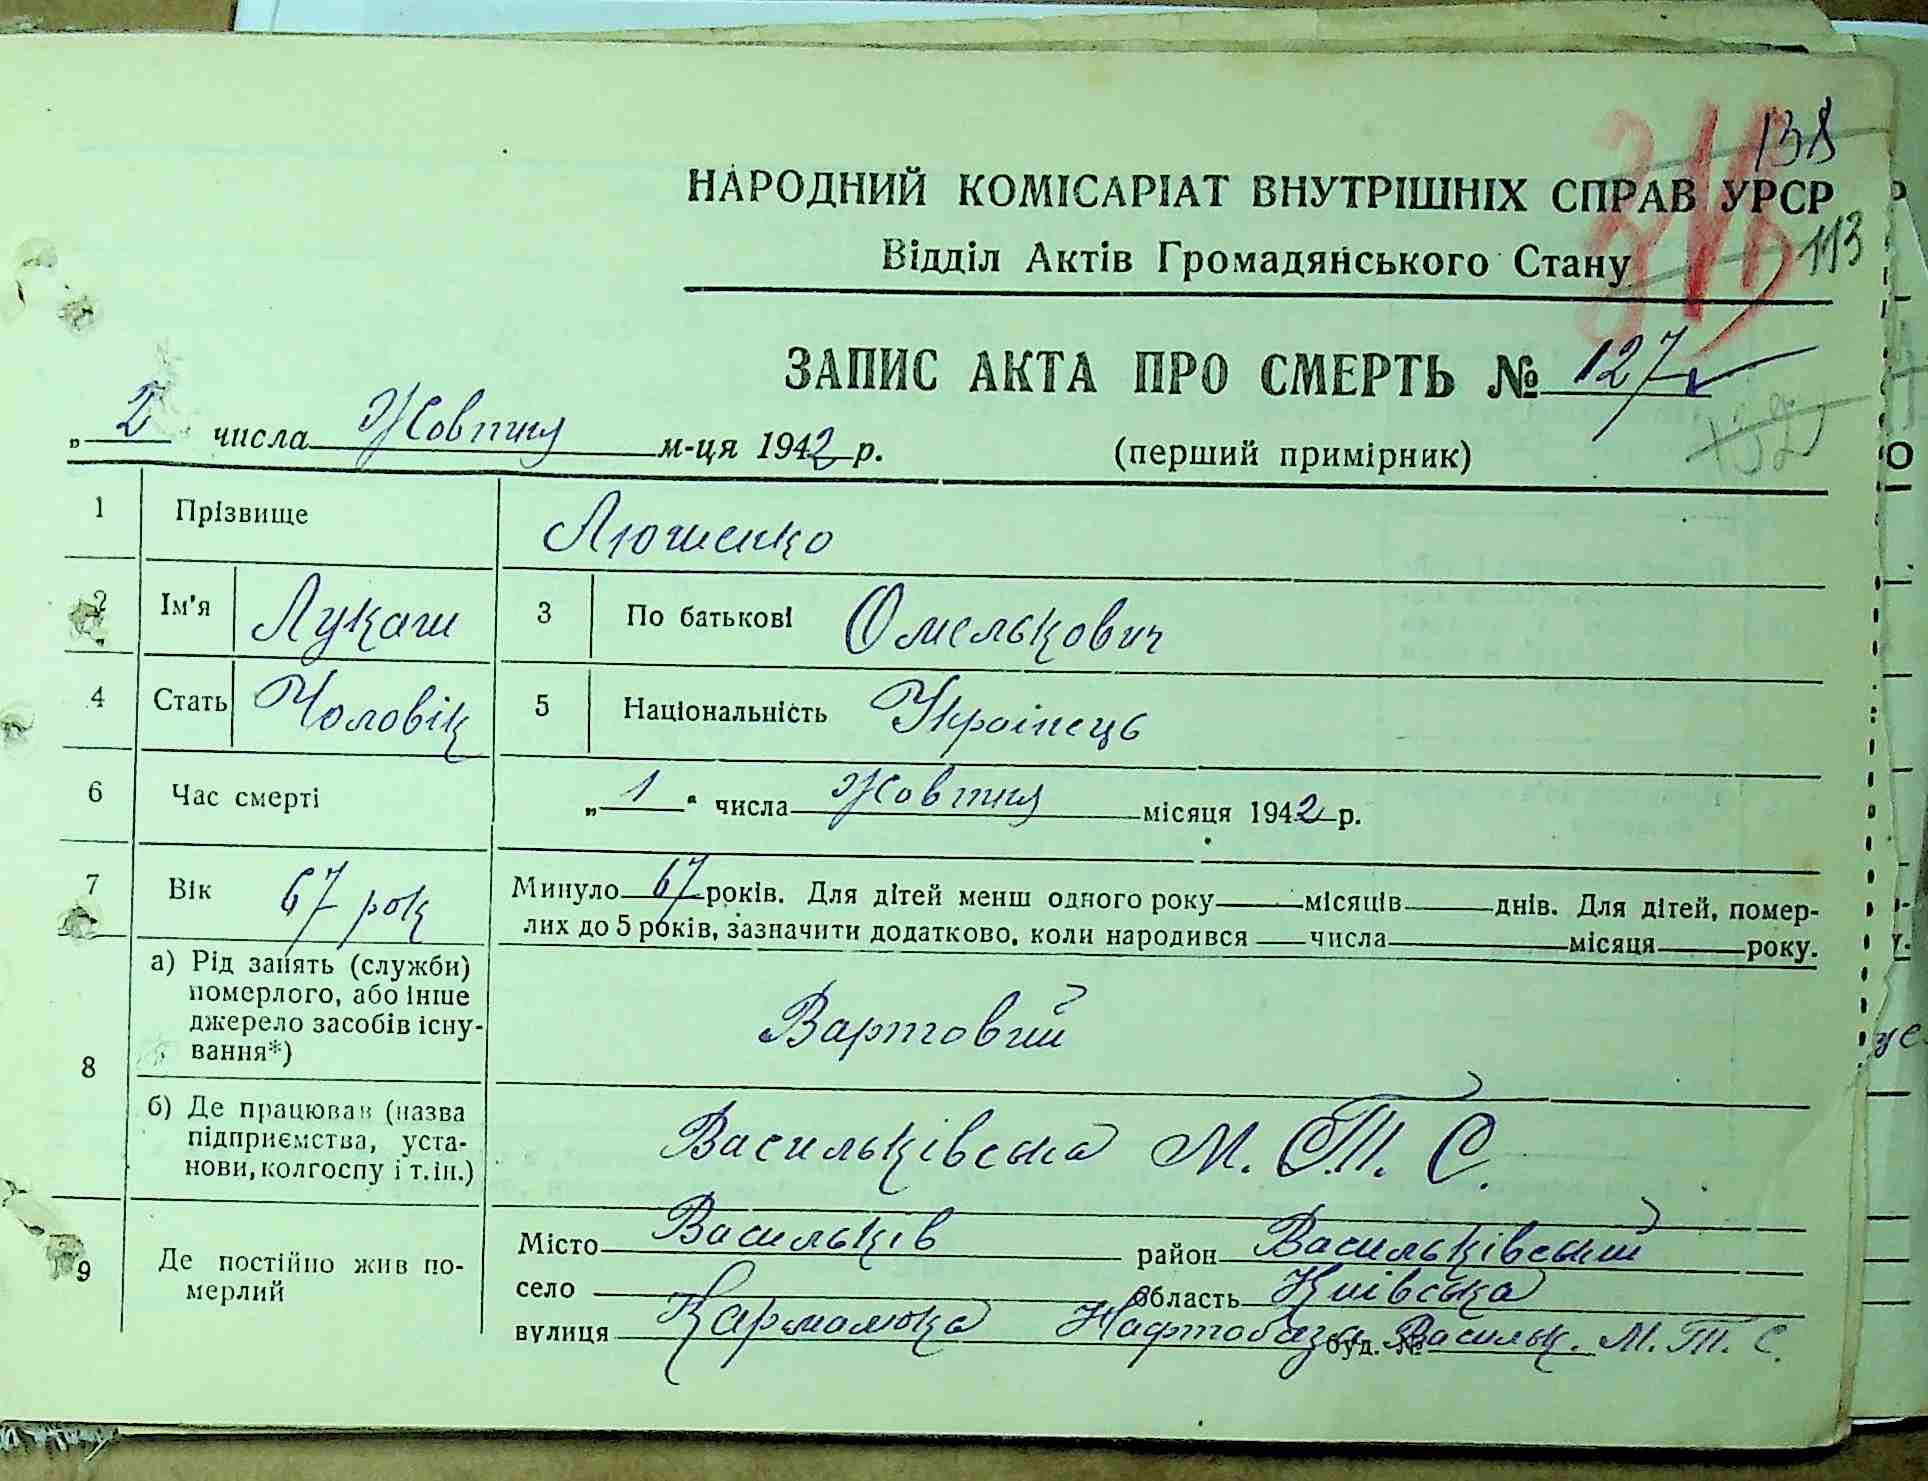 138
НАРОДНИЙ КОМІСАРІАТ ВНУТРІШНІХ СПРАВ УРСР
Відділ Актів Громадянського Стану
113
ЗАПИС АКТА ПРО СМЕРТЬ № 127
„ 2 числа Жовтня м-ця 1942 р. (перший примірник)
132
1 Прізвище Люшенко
2 Ім'я Лукаш 3 По батькові Омелькович
4 Стать Чоловік 5 Національність Українець
6 Час смерті „ 1 " числа Жовтня місяця 1942 р.
7 Вік 67 рок Минуло 67 років. Для дітей менш одного року місяців днів. Для дітей, помер-
лих до 5 років, зазначити додатково, коли народився числа місяця року.
8 а) Рід занять (служби)
померлого, або інше
джерело засобів існу-
вання*)
Вартовий
б) Де працював (назва
підприємства, уста-
нови, колгоспу і т.ін.)
Васильківська М. Т. С.
9 Де постійно жив по-
мерлий
Місто Васильків район Васильківський
село область Київська
вулиця Кармалюка Нафтобаза буд. № Васильк. М. Т. С.